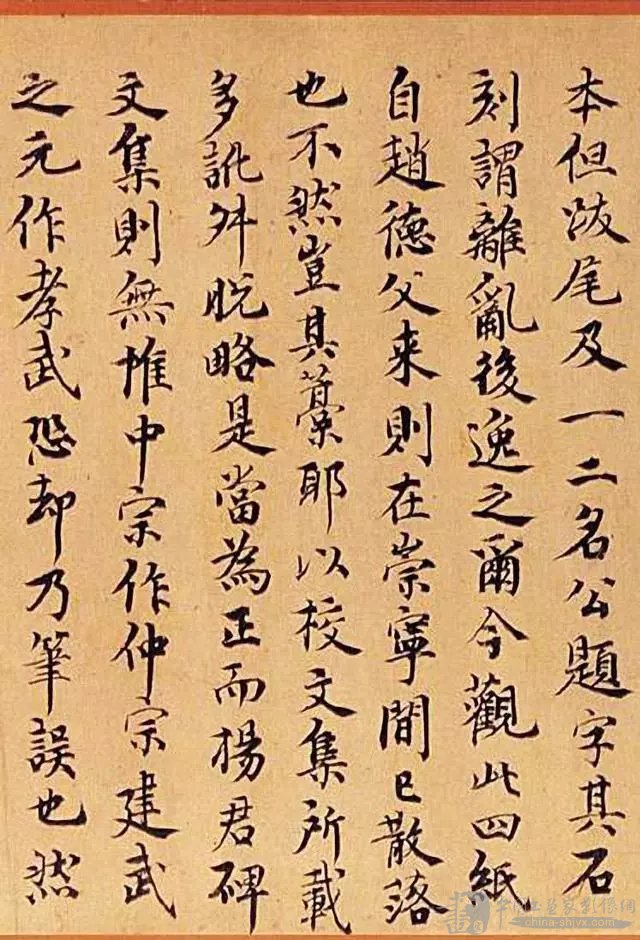 本但跋尾及一二名公題字其石
刻謂離亂後逸之爾今觀此四紙
自趙德父来則在崇寧間已散落
也不然豈其藁耶以校文集所載
多訛舛脫略是當為正而楊君碑
文集則無惟中宗作仲宗建武
之元作孝武恐却乃筆誤也然
www.china-shjyx.com